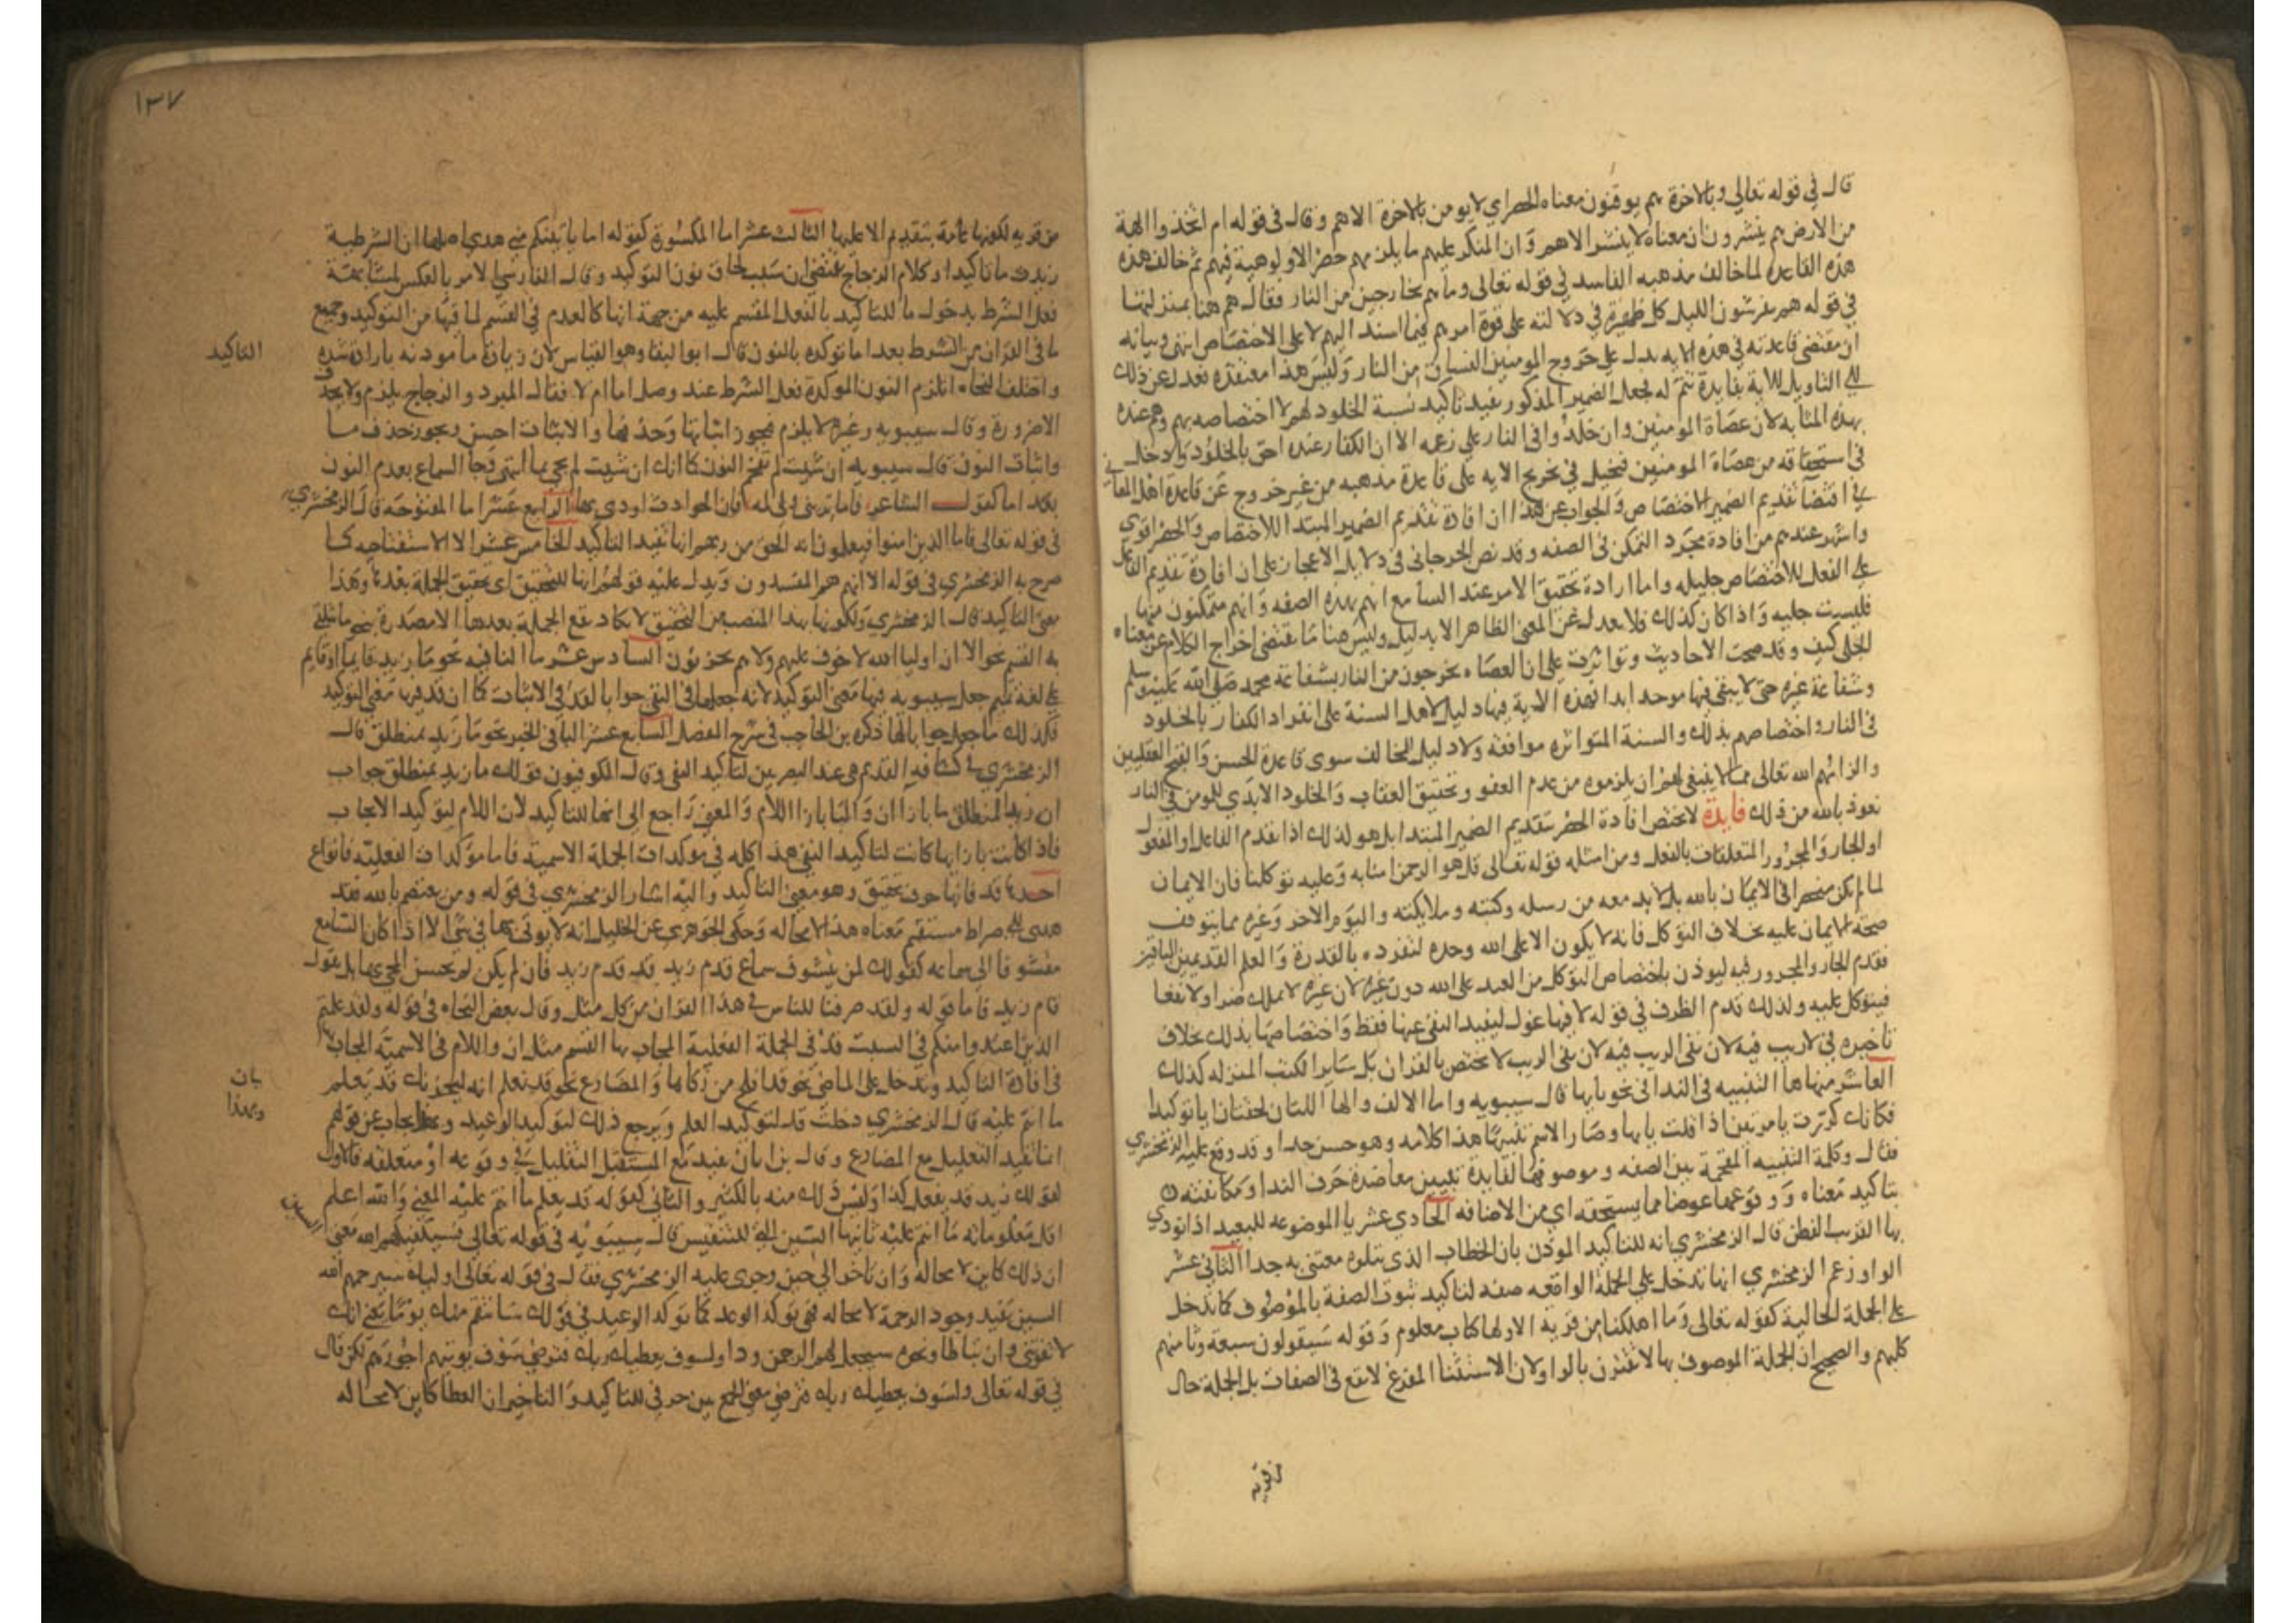 قال في قوله تعالي وبالاخرة هم يوقنون معناه الحصر اي لا يومن بالاخرة الا هم وقال في قوله ام اتخذوا الهة
من الارض هم ينشرون ان معناه لا ينشر الا هم وان المنكر عليهم ما يلزمهم حصر الالوهية فيهم ثم خالف هذه
هذه القاعدة لما خالف مذهبه الفاسد في قوله تعالى وما هم بخارجين من النار فقال هم هنا بمنزلتها
في قوله هم يفرشون اللبد كل طمرة في دلالته على قوة امرهم فيما اسند اليهم لا على الاختصاص انتهى وبيانه
ان مقتضى قاعدته في هذه الايه يدل على خروج المومنين الفساق من النار وليس هذا معتقده فعدل عن ذلك
الي التاويل للاية بفايدة تتم له فجعل الضمير المذكور يفيد تاكيد نسبة الخلود لهم لا اختصاصه بهم وهم عنده
بهذه المثابه لان عصاة المومنين وان خلدوا في النار على زعمه الا ان الكفار عنده احق بالخلود وادخل
في استحقاقه من عصاة المومنين فتخيل في تخريج الايه على قاعدة مذهبه من غير خروج عن قاعدة اهل المعاني
في اقتضا تقديم الضمير الاختصاص والجواب عن هذا ان افادة تقديم الضمير المبتدا للاختصاص والحصر اقوي
واشهر عندهم من افادة مجرد التمكن في الصفه وقد نص الجرجاني في دلايل الاعجاز على ان افادة تقديم الفاعل
على الفعل للاختصاص جليله واما ارادة تحقيق الامر عند السامع انهم بهذه الصفه وانهم متمكنون منها
فليست جليه واذا كان كذلك فلا يعدل عن المعنى الظاهر الا بدليل وليس هنا ما يقتضى اخراج الكلام عن معناه
الجلى كيف وقد صحت الاحاديث وتواترت على ان العصاه يخرجون من النار بشفاعة محمد صلي الله عليه وسلم
وشفاعة غيره حتى لا يبقى فيها موحد ابدا فهذه الاية فيها دليل لاهل السنة على انفراد الكفار بالخلود
في النار واختصاصهم بذلك والسنة المتواتره موافقه ولا دليل للمخالف سوى قاعدة الحسن والقبح العقليين
والزامهم الله تعالى مما لا ينبغى لهم ان يلزموه من عدم العفو وتحقيق العقاب والخلود الابدي للمومن في النار
نعوذ بالله من ذلك فايدة لا يختص افادة الحصر بتقديم الضمير المبتدا بل هو لذلك اذا تقدم الفاعل او المفعول
او الجار والمجرور المتعلقات بالفعل ومن امثله قوله تعالى قل هو الرحمن امنا به وعليه توكلنا فان الايمان
لما لم يكن منحصرا في الايمان بالله بل لا بد معه من رسله وكتبه وملايكته واليوم الاخر وغيره مما يتوقف
صحة الايمان عليه بخلاف التوكل فانه لا يكون الا على الله وحده لتفرده بالقدرة والعلم القديمين الباقيين
فقدم الجار والمجرور فيه ليوذن باختصاص التوكل من العبد على الله دون غيره لان غيره لا يملك ضرا ولا نفعا
فيتوكل عليه ولذلك قدم الظرف في قوله لا فيها غول ليفيد النفي عنها فقط واختصاصها بذلك بخلاف
تاخيره في لا ريب فيه لان نفى الريب فيه لان نفى الريب لا يختص بالقران بل ساير الكتب المنزله كذلك
العاشر منها ها التنبيه في الندا نحو يا يها قال سيبويه واما الالف والها اللتان لحقتا ايا توكيدا
فكانك كررت يا مرتين اذا قلت يا يها وصار الاسم تنبيها هذا كلامه وهو حسن جدا وقد وقع عليه الزمخشري
فقال وكلمة التنبيه المقحمة بين الصفه وموصوفها لفايدة تبيين معاضدة حرف الندا ومكانفته
بتاكيد معناه ووقوعها عوضا مما يستحقه اي من الاضافه الحادي عشر يا الموضوعه للبعيد اذا نودي
بها القريب الفطن قال الزمخشري انه للتاكيد الموذن بان الخطاب الذي يتلوه معتنى به جدا الثاني عشر
الواو زعم الزمخشري انها تدخل على الجملة الواقعه صفه لتاكيد ثبوت الصفة بالموصوف كما تدخل
على الجملة الحالية كقوله تعالى وما اهلكنا من قرية الا ولها كتاب معلوم وقوله سيقولون سبعة وثامنهم
كلبهم والصحيح ان الجملة الموصوف بها لا تقترن بالواو لان الاستثنا المفرغ لا يقع في الصفات بل الجملة حال
من قريه
١٣٧
من قريه لكونها عامة بتقديم الا عليها الثالث عشر اما المكسورة كقوله اما ياتينكم مني هدى اصلها ان الشرطية
زيدت ما تاكيدا وكلام الزجاج يقتضى ان سبب لحاق نون التوكيد وقال الفارسي الامر بالعكس لمشابهة
فعل الشرط بدخول ما للتاكيد بالفعل المقسم عليه من جهة انها كالعدم في القسم لما فيها من التوكيد وجميع
ما في القران من الشرط بعد اما توكده بالنون قال ابو البقا وهو القياس لان زيادة ما موذنه بارادة شدة
التاكيد
واختلف النحاه اتلزم النون الموكدة فعل الشرط عند وصل اما ام لا فقال المبرد والزجاج يلزم ولا يحذف
الا ضرورة وقال سيبويه وغيره لا يلزم فيجوز اثباتها وحذفها والاثبات احسن ويجوز حذف ما
واثبات النون قال سيبويه ان شيت لم تقحم النون كما انك ان شيت لم تجي بما انتهى وجا السماع بعدم النون
بعد اما كقول الشاعر فاما تريني ولي لمه فان الحوادث اودى بها الرابع عشر اما المفتوحة قال الزمخشري
في قوله تعالى فاما الذين امنوا فيعلمون انه الحق من ربهم انها تفيد التاكيد الخامس عشر الا الاستفتاحيه كما
صرح به الزمخشري في قوله الا انهم هم المفسدون ويدل عليه قولهم انها للتحقيق اي تحقيق الجملة بعدها وهذا
معنى التاكيد قال الزمخشري ولكونها بهذا المنصب من التحقيق لا تكاد تقع الجملة بعدها الا مصدرة بنحو ما يتلقى
به القسم نحو الا ان اوليا الله لا خوف عليهم ولا هم يحزنون السادس عشر ما النافيه نحو ما زيد قايما او قايم
على لغة تميم جعل سيبويه فيها معنى التوكيد لانه جعلها في النفي جوابا لقد في الاثبات كما ان قد فيها معنى التوكيد
فكذلك ما جعل جوابا لها ذكره بن الحاجب في شرح المفصل السابع عشر البا في الخبر نحو ما زيد بمنطلق قال
الزمخشري في كشافه القديم هي عند البصريين لتاكيد النفى وقال الكوفيون قولك ما زيد بمنطلق جواب
ان زيدا لمنطلق ما بازا ان والبا بازا اللام والمعنى راجع الى انها للتاكيد لان اللام لتوكيد الايجاب
فاذا كانت بازايها كانت لتاكيد النفي هذا كله في موكدات الجملة الاسمية فاما موكدات الفعليه فانواع
احدها قد فانها حرف تحقيق وهو معنى التاكيد واليه اشار الزمخشري في قوله ومن يعتصم بالله فقد
هدى الى صراط مستقيم معناه هذا لا محاله وحكى الجوهري عن الخليل انه لا يوتى بها في شى الا اذا كان السامع
متشوفا الى سماعه كقولك لمن يتشوف سماع قدم زيد قد قدم زيد فان لم يكن لم يحسن المجي بها بل تقول
قام زيد فاما قوله ولقد صرفنا للناس في هذا القران من كل مثل وقال بعض النحاه في قوله ولقد علمتم
الذين اعتدوا منكم في السبت قد في الجملة الفعلية المجاب بها القسم مثل ان واللام في الاسمية المجاب بها
في افادة التاكيد وتدخل على الماضي نحو قد افلح من زكاها والمضارع نحو قد نعلم انه ليحزنك قد يعلم
بان
ما انتم عليه قال الزمخشري دخلت قد لتوكيد العلم ويرجع ذلك لتوكيد الوعيد وبهذا يجاب عن قولهم
وبهذا
انما تفيد التعليل مع المضارع وقال بن ابان تفيد مع المستقبل التقليل في وقوعه او متعلقه فالاول
كقولك زيد قد يفعل كذا وليس ذلك منه بالكثير والثاني كقوله قد يعلم ما انتم عليه المعني والله اعلم
اقل معلوماته ما انتم عليه ثانيها السين التي للتنفيس قال سيبويه في قوله تعالي فسيكفيكهم الله معنى
السين
ان ذلك كاين لا محاله وان تاخر الي حين وجرى عليه الزمخشري فقال في قوله تعالى اوليك سيرحمهم الله
السين تفيد وجود الرحمة لا محاله فهي توكد الوعد كما توكد الوعيد في قولك سانتقم منك يوما يعني انك
لا تفوتني وان تباطا ونحوه سيجعل لهم الرحمن ودا ولسوف يعطيك ربك فترضى سوف يوتيهم اجورهم لكن قال
في قوله تعالى ولسوف يعطيك ربك فترضى معنى الجمع بين حرفي للتاكيد والتاخير ان العطا كاين لا محاله